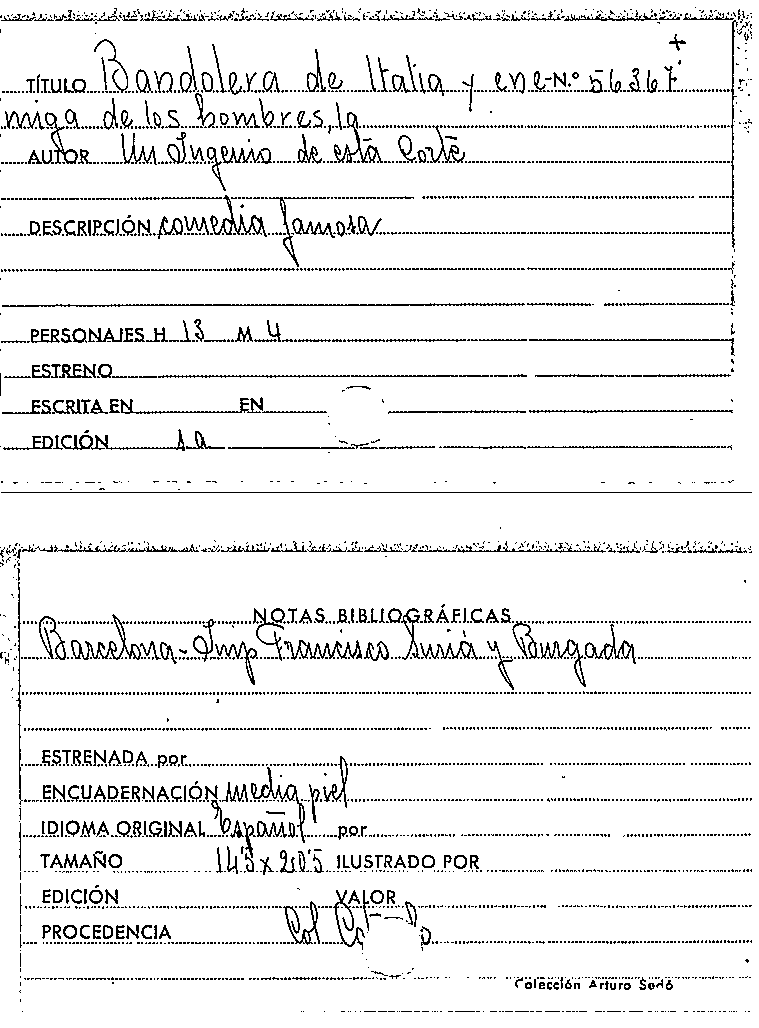 +
TÍTULO Bandolera de Italia y ene- N.º 56367
miga de los hombres, la
AUTOR Un Ingenio de esta Corte
DESCRIPCIÓN comedia famosa
PERSONAJES H 13 M 4
ESTRENO
ESCRITA EN EN
EDICIÓN 1a
NOTAS BIBLIOGRÁFICAS
Barcelona - Imp Francisco Suriá y Burgada
ESTRENADA por
ENCUADERNACIÓN media piel
IDIOMA ORIGINAL Español por
TAMAÑO 14'5 x 20'5 ILUSTRADO POR
EDICIÓN VALOR
PROCEDENCIA Col
Colección Arturo Sedó